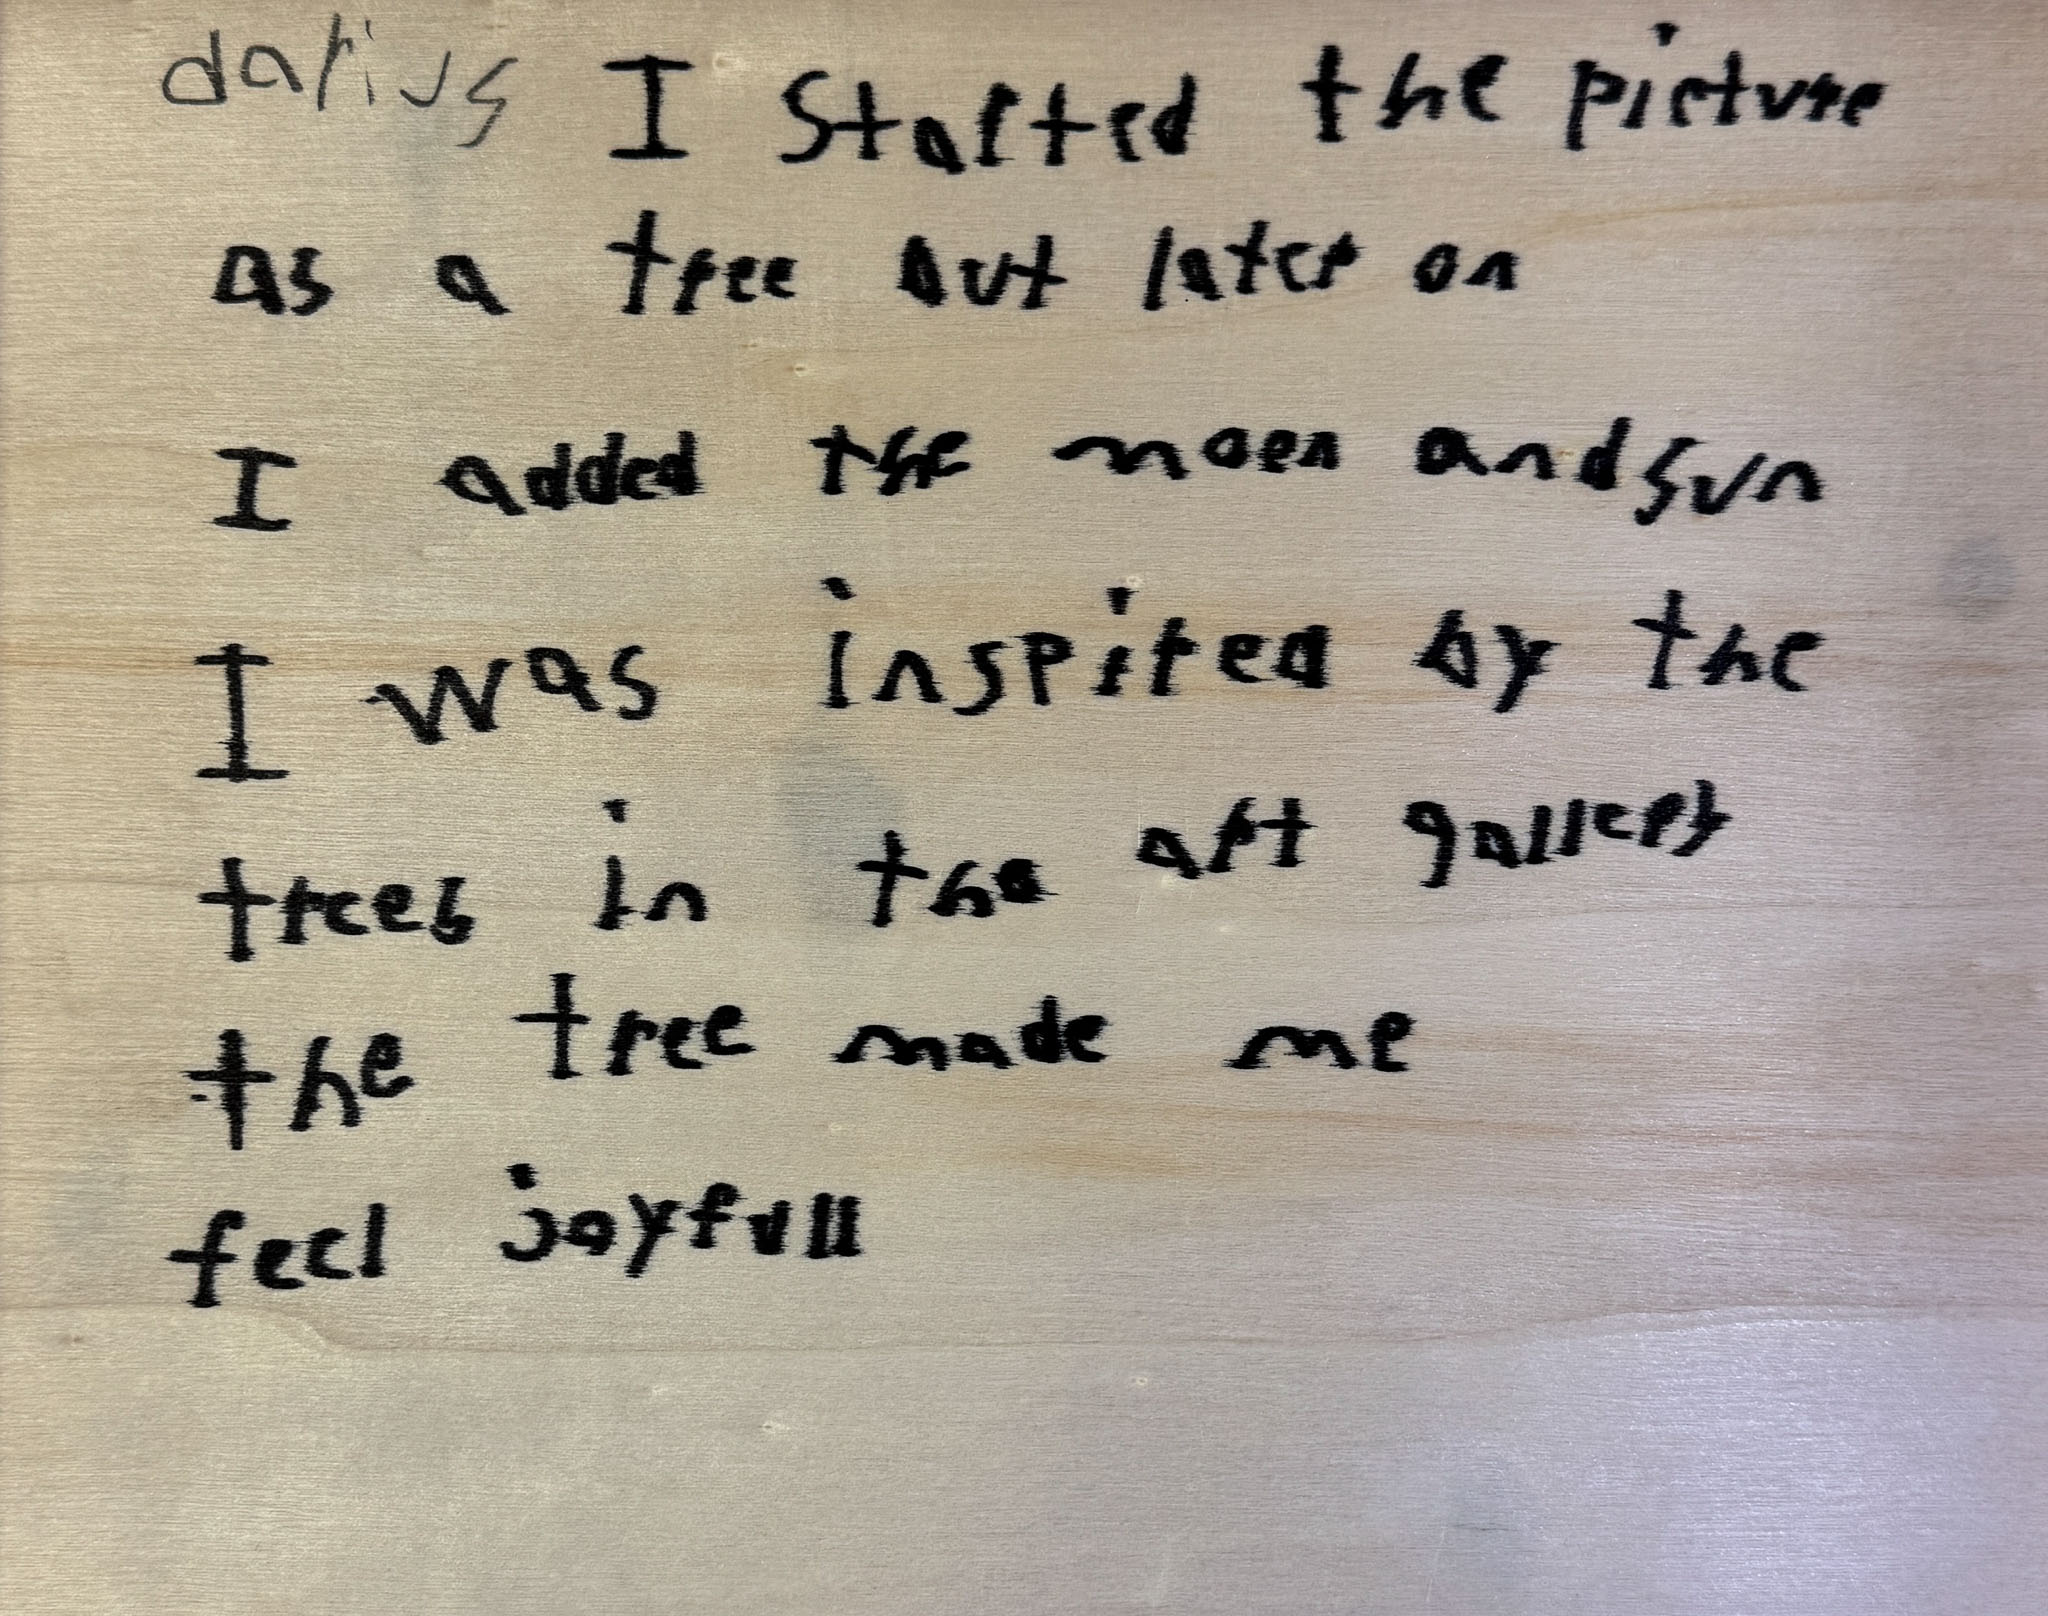 darius I started the picture
as a tree but later on
I added the moon and sun
I was inspired by the
trees in the art gallery
the tree made me
feel joyfull